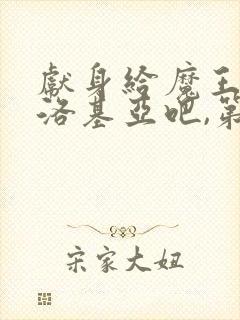 獻身給魔王
洛基亞吧,第
宋家大妞